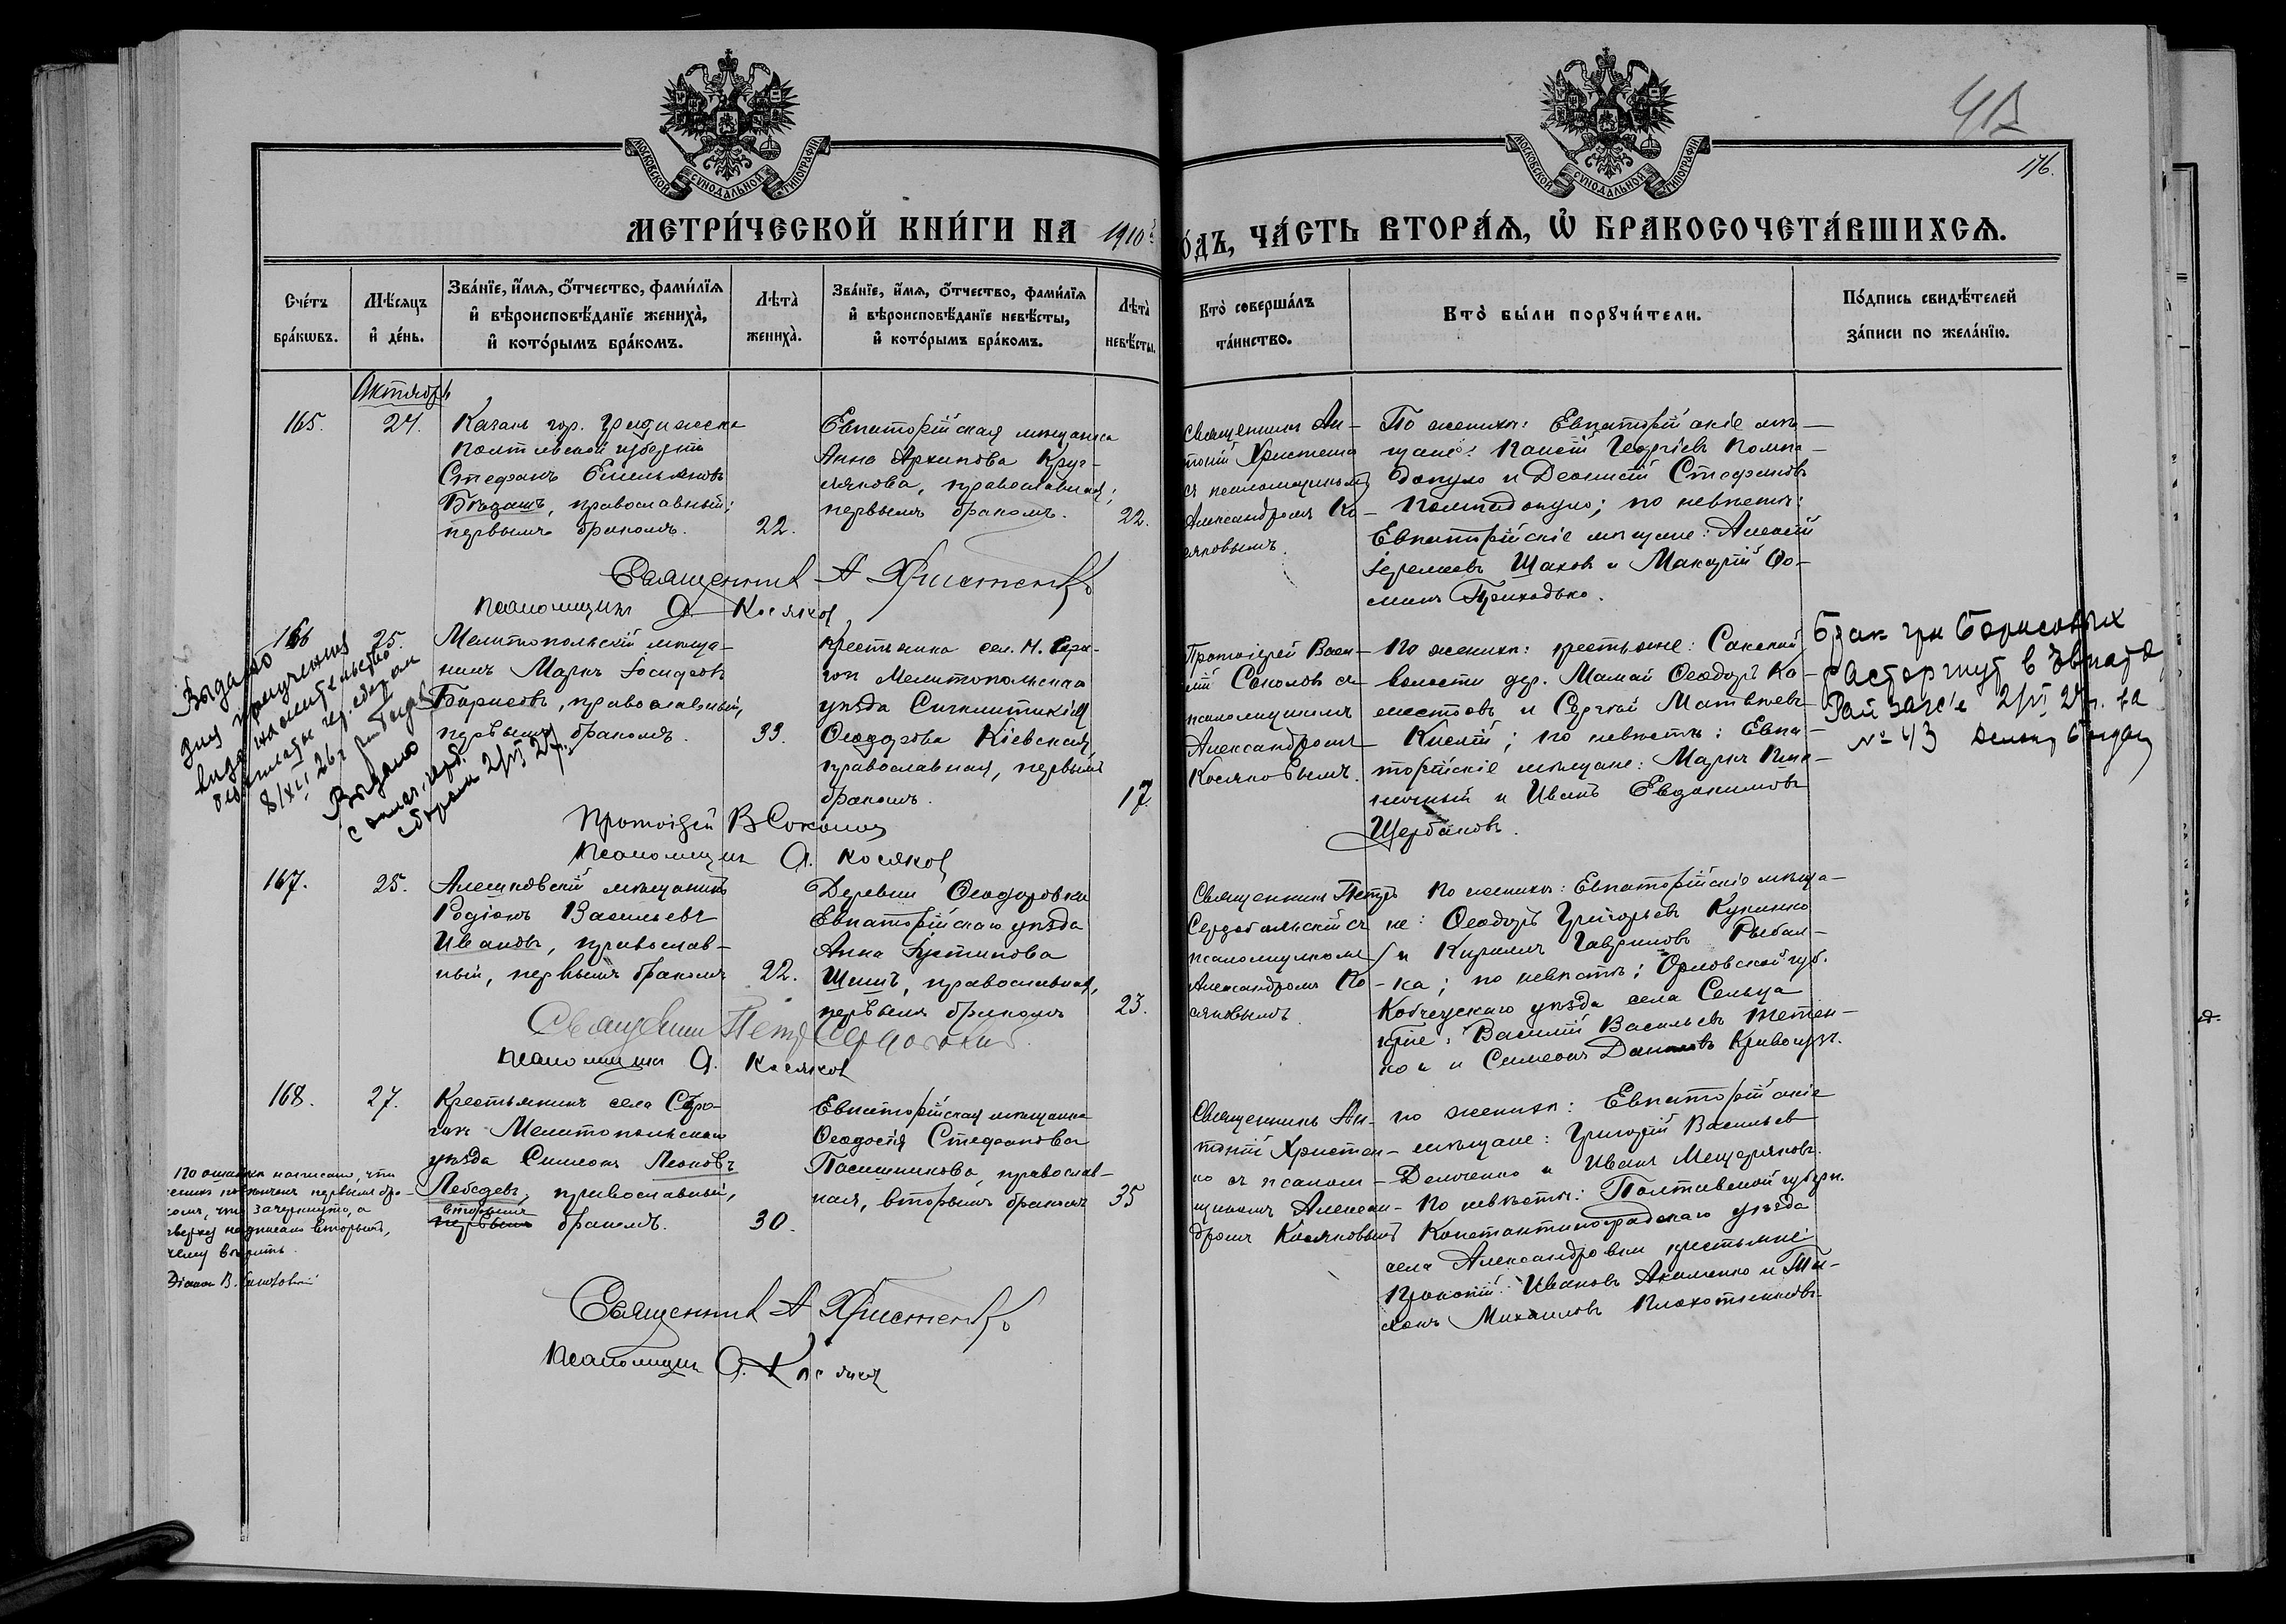 176.
МОСКОВСКОЙ СѴНОДАЛЬНОЙ ТИПОГРАФІИ
МОСКОВСКОЙ СѴНОДАЛЬНОЙ ТИПОГРАФІИ
МЕТРИ́ЧЕСКОЙ КНИ́ГИ НА 1910
О́ДЪ, ЧА́СТЬ ВТОРА́Ѧ, Ѽ БРАКОСОЧЕТА́ВШИХСѦ.
Сче́тъ
бра́кѡвъ.
Мѣ́сѧцъ
и҆ де́нь.
Зва́нїе, и҆́мѧ, ѻ҆́тчество, фами́лїѧ
и҆ вѣроисповѣ́данїе жениха̀,
и҆ кото́рымъ бра́комъ.
Лѣта̀
жениха̀.
Зва́нїе, и҆́мѧ, ѻ҆́тчество, фами́лїѧ
и҆ вѣроисповѣ́данїе невѣ́сты,
и҆ кото́рымъ бра́комъ.
Лѣта̀
невѣ́сты.
Кто̀ соверша́лъ
та́инство.
Кто̀ бы́ли порꙋчи́тели.
По́дпись свидѣ́телей
за́писи по жела́нїю.
Октябрь
165.
24.
Казакъ гор. Градижска
Полтавской губерніи
Стефанъ Емельяновъ
православный;
первымъ бракомъ.
22.
Евпаторійская мѣщанка
Анна Архипова Круг-
лякова, православная;
первымъ бракомъ.
22.
Священникъ Ан-
тоній Христенко
съ псаломщикомъ
Александромъ Ко-
сяковымъ.
По женихѣ: Евпаторійскіе мѣ-
щане: Паисій Георгіевъ Помпа-
допуло и Діонисій Стефановъ
Помпадопуло; по невѣстѣ:
Евпаторійскіе мѣщане: Алексій
Іереміевъ Шаховъ и Макарій Ѳо-
минъ Приходько.
Священникъ А Христенко
псаломщикъ А. Косяковъ
166
25.
Мелитопольскій мѣща-
нинъ Маркъ Іосифовъ
Борисовъ, православный,
первымъ бракомъ.
33.
Крестьянка сел. Н. Серо-
гозъ Мелитопольскаго
уѣзда Синклитикія
Ѳеодорова Кіевская,
православная, первымъ
бракомъ.
17.
Протоіерей Васи-
лій Соколовъ съ
псаломщикомъ
Александромъ
Косяковымъ.
По женихѣ: крестьяне: Сакской
волости дер. Мамай Ѳеодоръ Ко-
лестовъ и Сергій Матвѣевъ
по невѣстѣ: Евпа-
торійскіе мѣщане: Маркъ
и Иванъ Евдокимовъ
Щербаковъ.
Брак гр Борисовых
расторгнут в Евпато
Рай загс'е 2/VI 27 г. за
№ 43
Выдано
для получения
вида на жительство
8/XII 26 г
Выдано
2/VI 27 г.
Протоіерей В Соколовъ
псаломщикъ А. Косяковъ
167.
25.
Алешковскій мѣщанинъ
Родіонъ Васильевъ
Ивановъ, православ-
ный, первымъ бракомъ
22.
Деревни Ѳеодоровки
Евпаторійскаго уѣзда
Анна Іустинова
православная,
первымъ бракомъ
23.
Священникъ Петръ
Сердобольскій съ
псаломщикомъ
Александромъ Ко-
сяковымъ.
По женихѣ: Евпаторійскіе мѣща-
не: Ѳеодоръ Григорьевъ Куценко
и Кириллъ Гавриловъ Рыбал-
ка; по невѣстѣ: Орловской губ.
уѣзда села Сельца
Василій Васильевъ
и Симеонъ Даниловъ
Священникъ Петръ Сердобольскій.
псаломщикъ А. Косяковъ
168.
27.
Крестьянинъ села Серо-
гозъ Мелитопольскаго
уѣзда Симеонъ Леоновъ
Лебедевъ, православный,
вторымъ
первымъ бракомъ.
30.
Евпаторійская мѣщанка
Ѳеодосія Стефанова
Пасишникова, православ-
ная, вторымъ бракомъ
35
Священникъ Ан-
тоній Христен-
ко съ псалом-
щикомъ Алексан-
дромъ Косяковымъ
По женихѣ: Евпаторійскіе
мѣщане: Григорій Васильевъ
Демченко и Иванъ Мещеряковъ.
По невѣстѣ: Полтавской губерн.
Константиноградскаго уѣзда
села Александровки крестьяне:
Прокопій Ивановъ Акименко и
Михаиловъ Плохотниковъ.
По ошибкѣ написано, что
первымъ бра-
комъ, что зачеркнуто, а
сверху надписано вторымъ,
чему вѣрить.
Діаконъ В.
Священникъ А Христенко
псаломщикъ А. Косяковъ